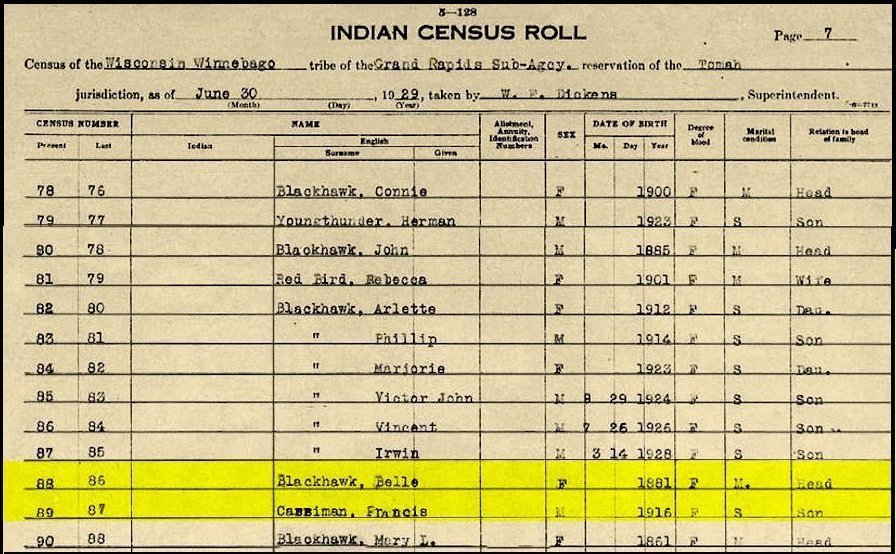 5—128
INDIAN CENSUS ROLL
Page 7
Census of the Wisconsin Winnebago tribe of the Grand Rapids Sub-Agcy. reservation of the Tomah
jurisdiction, as of June 30, 1929, taken by W. F. Dickens, Superintendent.
(Month) (Day) (Year)
CENSUS NUMBER NAME Allotment, Annuity, Identification Numbers SEX DATE OF BIRTH Degree of blood Marital condition Relation to head of family
Present Last Indian English Mo. Day Year
Surname Given
78 76 Blackhawk, Connie F 1900 F M Head
79 77 Youngthunder, Herman M 1923 F S Son
80 78 Blackhawk, John M 1885 F M Head
81 79 Red Bird, Rebecca F 1901 F M Wife
82 80 Blackhawk, Arlette F 1912 F S Dau.
83 81 " Phillip M 1914 F S Son
84 82 " Marjorie F 1923 F S Dau.
85 83 " Victor John M 8 29 1924 F S Son
86 84 " Vincent M 7 26 1926 F S Son
87 85 " Irwin M 3 14 1928 F S Son
88 86 Blackhawk, Belle F 1881 F M. Head
89 87 Cassiman, Francis M 1916 F S Son
90 88 Blackhawk, Mary L. F 1861 F M Head